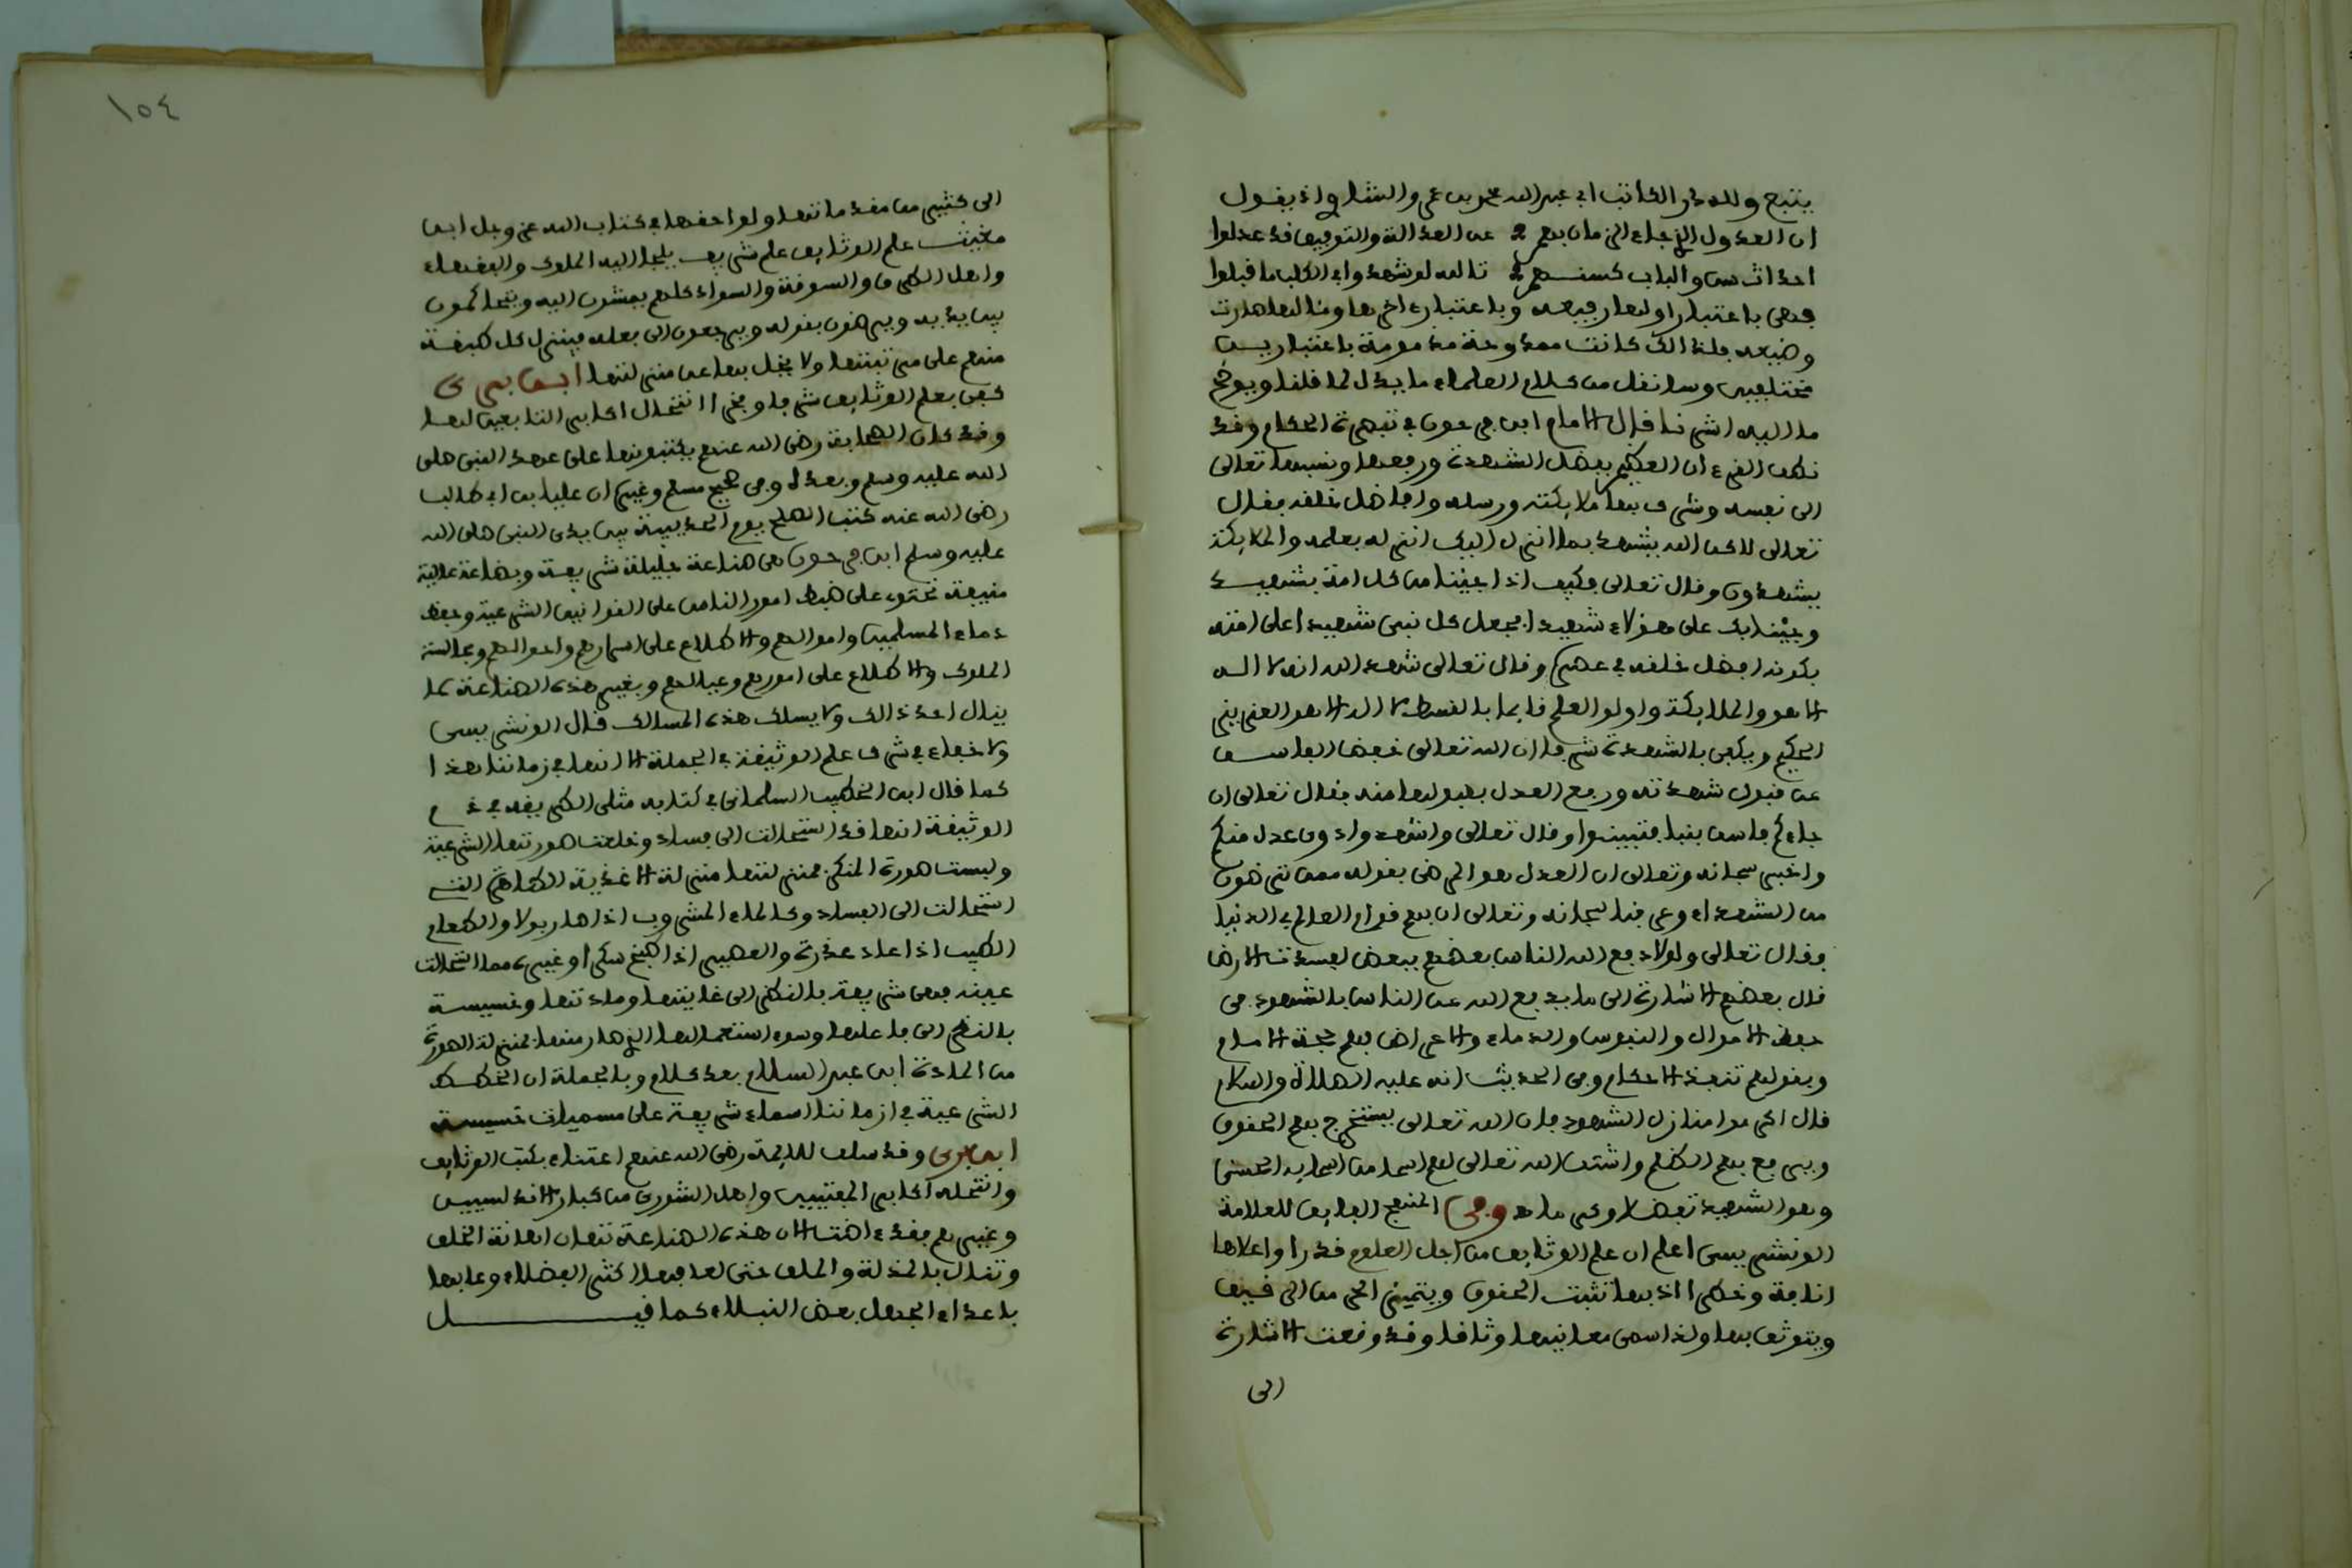 ينتج ولله در الكاتب ابي عبد الله محمد بن عمر والشاو اذ يقول
ان العدول الزجاء الزمان بهم عن العدالة والتوفيق قد عدلوا
تالله لو شهدوا في الكلب ما قبلوا
فهي باعتبار اولها رفيعه وباعتبار ءاخرها ومئالها صارت
وضيعه فلذالك كانت ممدوحة مذمومة باعتبارين
مختلفين وسانقل من كلام العلماء ما يدل لما قلنا ويوضح
ما اليه اشرنا قال الامام ابن فرحون في تبصرة الحكام وقد
نطق القرءان العظيم بفضل الشهدة ورفعها ونسبها تعالى
الى نفسه وشرف بها ملايكته ورسله وافاضل خلقه فقال
تعالى لاكن الله يشهد بما انزل اليك انزله بعلمه والملايكة
يشهدون وقال تعالى فكيف اذا جئنا من كل امة بشهيد
وجئنا بك على هؤلاء شهيدا فجعل كل نبي شهيدا على امته
بكونه افضل خلقه في عصره وقال تعالى شهد الله انه لا اله
الا هو والملايكة واولو العلم قايما بالقسط لا اله الا هو العزيز
الحكيم ويكفي بالشهدة شرفا ان الله تعالى خفض الفاسق
عن قبول شهدته ورفع العدل بقبولها منه فقال تعالى ان
جاءكم فاسق بنبإ فتبينوا وقال تعالى واشهدوا ذوي عدل منكم
واخبر سبحانه وتعالى ان العدل هو المرضى بقوله ممن ترضون
من الشهداء وعرفنا سبحانه وتعالى ان بهم قوام العالم في الدنيا
وقال تعالى ولولا دفع الله الناس بعضهم ببعض لفسدت الارض
قال بعضهم الاشارة الى ما يدفع الله عن الناس بالشهود في
حفظ الاموال والنفوس والدماء والاعراض بهم حجة الامام
وبقولهم تنفذ الاحكام وفي الحديث انه عليه الصلاة والسلام
قال اكرموا منازل الشهود فان الله تعالى يستخرج بهم الحقوق
ويرفع بهم الظلم واشتق الله تعالى لهم اسما من اسمايه الحسنى
وهو الشهيد تفضلا وكرما وفي المنهج الفايق للعلامة
الونشريسي اعلم ان علم الوثايق من اجل العلوم قدرا واعلاها
انافة وخطرا اذ بها تثبت الحقوق ويتميز الحر من الرقيق
ويتوثق بها ولذا سمى معانيها وثاقا وقد وقعت الاشارة
الى
١٥٤
الى كثير من فقهها تها ولواحقها في كتاب الله عز وجل ابن
مغيث علم الوثايق علم شريف يلجا اليه الملوك والفقهاء
واهل الطرف والسوقة والسواد كلهم يمشون اليه ويتحاكمون
بين يديه ويرضون بقوله ويرجعون الى فعله فينزل كل طبقة
منهم على مرتبتها ولا يخل بها عن منزلتها ابن بري
كفى بعلم الوثايق شرفا وفخرا انتحال اكابر التابعين لها
وقد كان الصحابة رضي الله عنهم يكتبونها على عهد النبي صلى
الله عليه وسلم وبعده وفي صحيح مسلم وغيره ان عليا بن ابي طالب
رضي الله عنه كتب الصلح يوم الحديبية بين يدي النبي صلى الله
عليه وسلم ابن فرحون هي صناعة جليلة شريفة وبضاعة عالية
منيفة تحتوي على ضبط امور الناس على القوانين الشرعية وحفظ
دماء المسلمين واموالهم والاطلاع على اسرارهم واحوالهم ومجالسة
الملوك والاطلاع على امورهم وعيالهم وبغير هذه الصناعة لا
ينال احد ذالك ولا يسلك هذه المسالك قال الونشريسي
ولا خفاء في شرف علم الوثيقة في الجملة الا انها في زماننا هذا
كما قال ابن الخطيب السلماني في كتابه مثلى الطريقة في ذم
الوثيقة انها قد استحالت الى فساد وخلعت صورتها الشرعية
ولبست صورة المنكر فمنزلتها منزلة الاغذية الطاهرة التي
استحالت الى الفساد وكالماء المشروب اذا صار بولا والطعام
الطيب اذا عاد عذرة والعصير اذا طبخ سكرا وغيره مما استحالت
عينه فهي شريفة بالنظر الى غايتها ومادتها وخسيسة
بالنظر الى فاعلها وسوء استعمالها الذي صار منها بمنزلة الصورة
من المادة ابن عبد السلام بعد كلام وبالجملة ان الخطط
الشرعية في ازماننا اسماء شريفة على مسميات خسيسة
ابن بري وقد سلف للايمة رضي الله عنهم اعتناء بكتب الوثايق
وانتحله اكابر المفتيين واهل الشورى من كبار الاندلسيين
وغيرهم فقد ءاضت الان هذه الصناعة تهان اهانة الخلف
وتذال بالمذلة والحلف حتى لها فيها اكثر الفضلاء وعابها
باعداء الجهل بعض النبلاء كما قيل